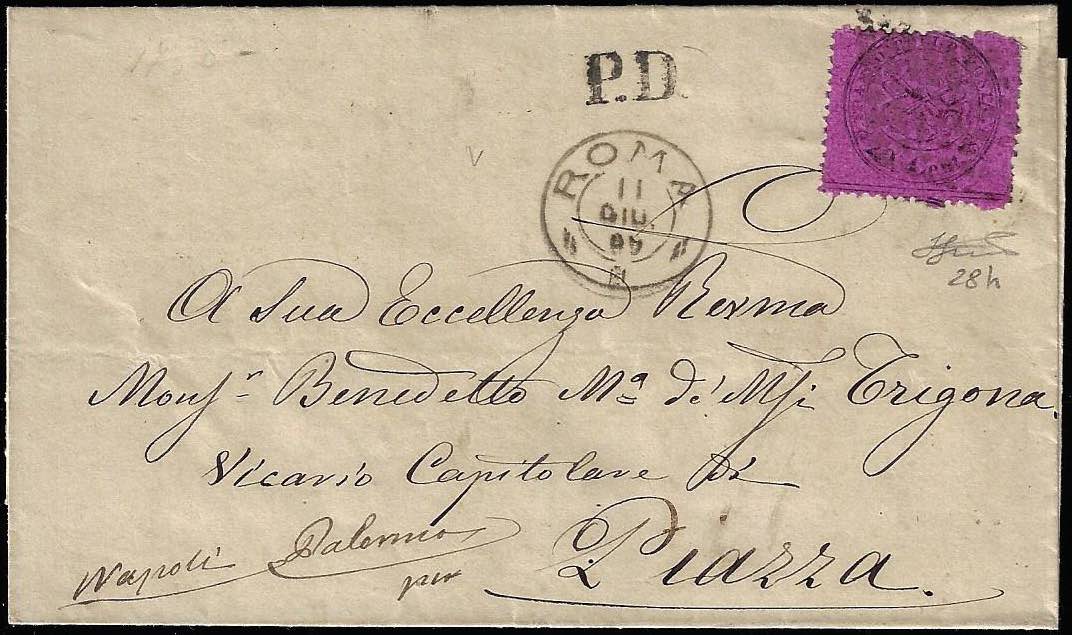 P.D.
ROMA
11
GIU.
69
28h
A Sua Eccellenza Revma
Monsr. Benedetto Ma. de' Msi Trigona.
Vicario Capitolare di
Napoli Palermo
per Piazza.